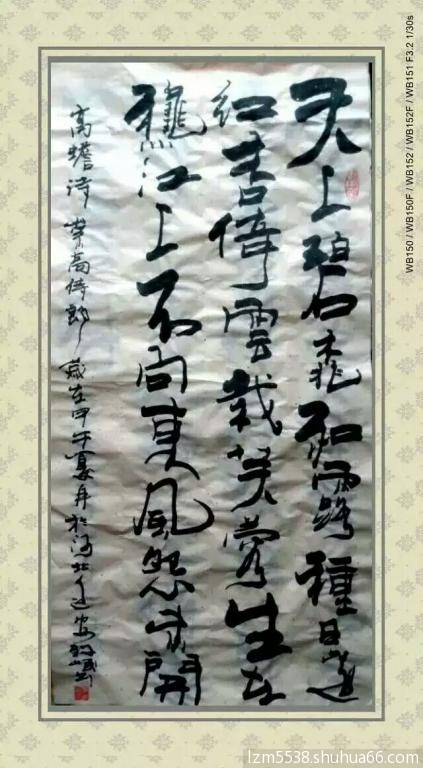 天上碧桃和露種日邊
红杏倚雲栽芙蓉生在
龝江上不向東風怨未開
高蟾诗崇高侍郎歲在甲午夏月於河北迁安
WB150 / WB150F / WB152 / WB152F / WB151 F3.2 1/30s
lzm5538.shuhua66.com